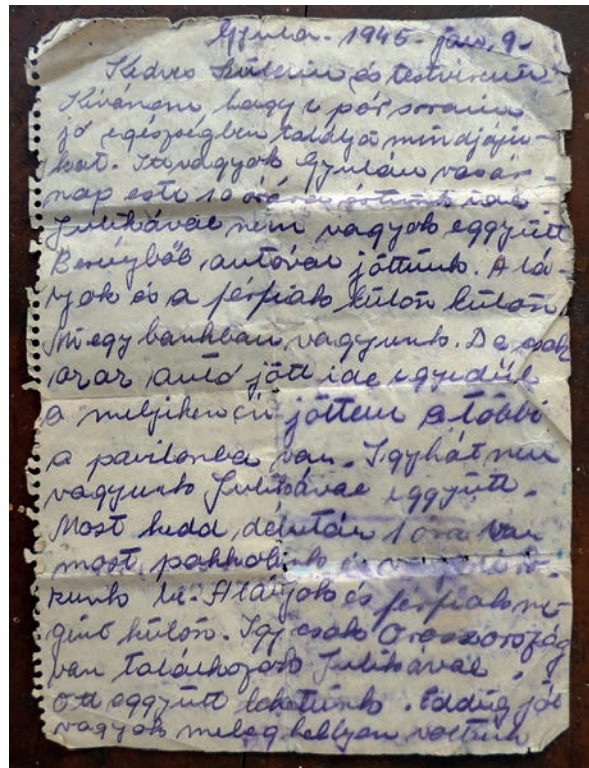 Gyula - 1945 - jan. 9.
Kedves szüleim és testvéreim
Kívánom hogy e pár soraim
jó egészségben találja mindjáju-
kat. Itt vagyok Gyulán vasár-
nap este 10 órára jöttünk ide
Julikával nem vagyok eggyütt
Berényből autóval jöttünk. A lá-
nyok és a férfiak külön külön
Mi egy bankban vagyunk. De csak
az az autó jött ide egyedül
a melyiken én jöttem a többi
a pavilonba van. Igyhát nem
vagyunk Julikával eggyütt.
Most kedd délután 1 óra van
most pakkolunk és
kunk be. A lányok és férfiak me-
gint külön. Így csak Oroszország
ban találkozok Julikával.
Ott eggyütt lehetünk. Eddig jól
vagyok meleg hellyen voltunk